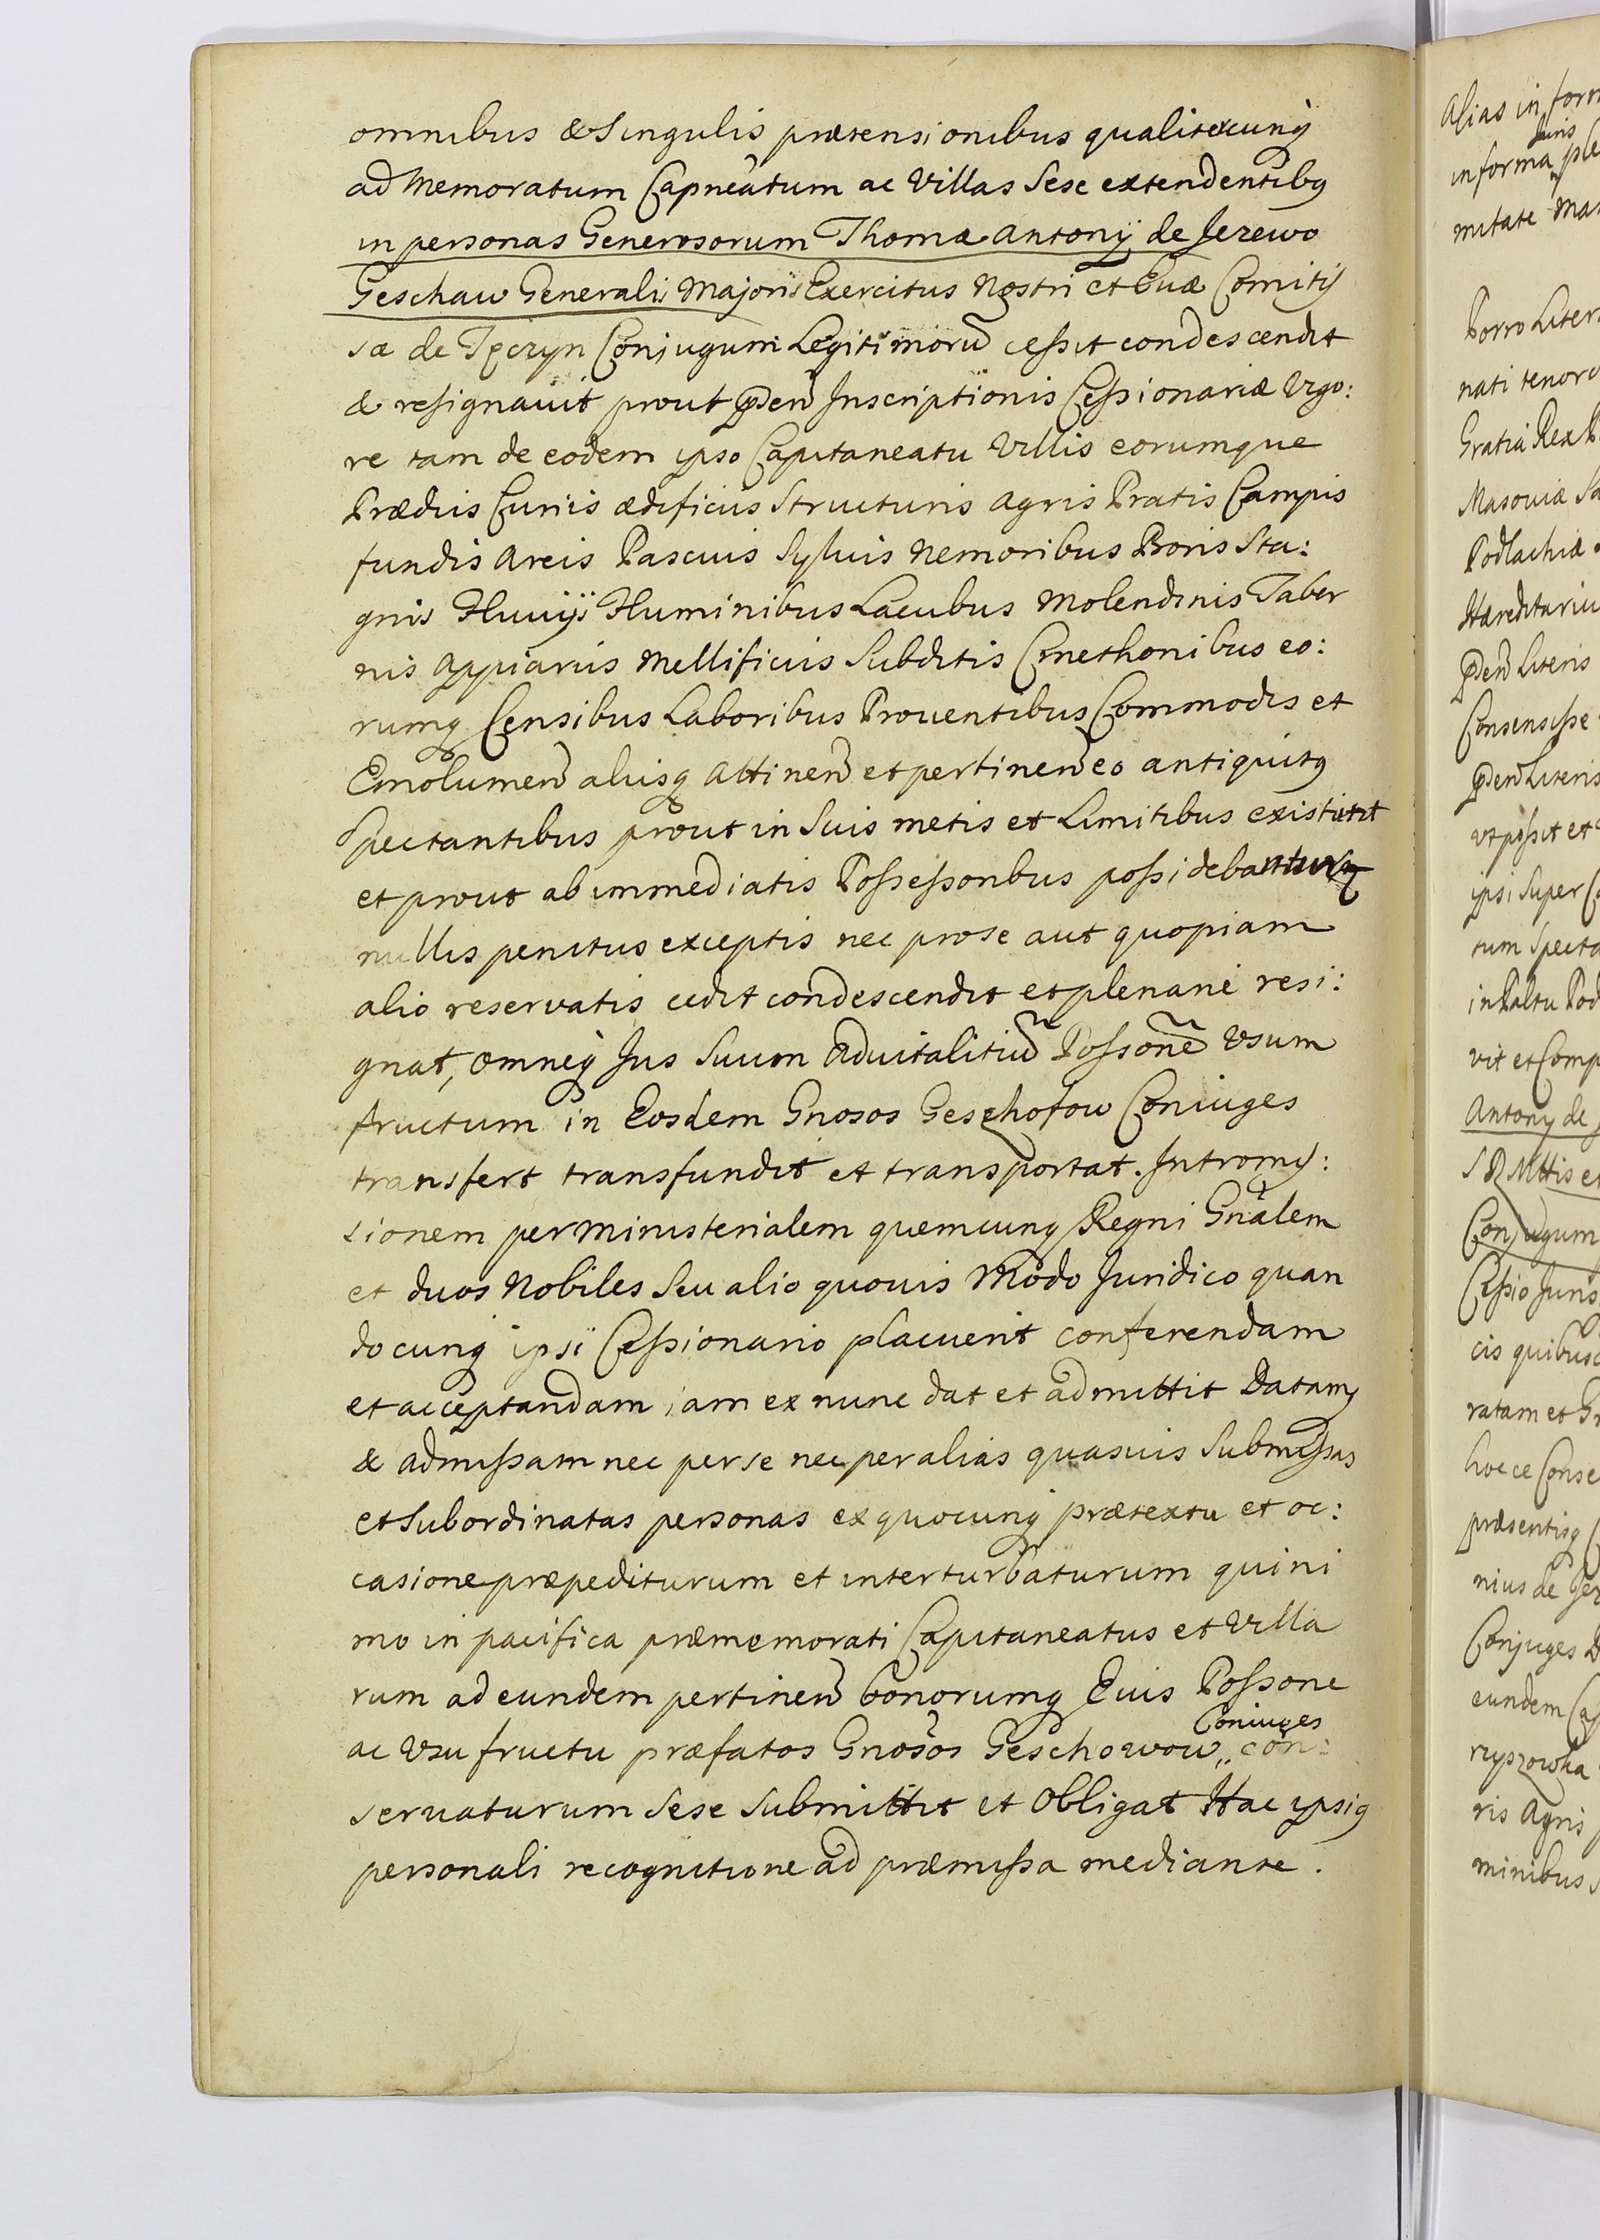 omnibus & Singulis prætensionibus qualitercunq
ad memoratum Capneatum ac Villas Sese extendentibq
in personas Generosorum Thomæ Antony de Jezewo
Geschaw Generalis Majoris Exercitus Nostri et Evæ Comitÿ
sæ de Teczyn Conjugum Legitimorū cessit condescendit
& resignavit prout pden̄ Inscriptionis Cessionariæ Vigo:
re tam de eodem ipso Capitaneatu Villis eorumque
Prædiis Curiis ædificiis Structuris Agris Pratis Campis
fundis Areis Pascuis Syluis Nemoribus Boris Sta:
gnis Fluuÿs Fluminibus Lacubus Molendinis Taber
nis Appiariis Mellificiis Subditis Cmethonibus eo:
rumq Censibus Laboribus Prouentibus Commodis et
Emolumen̄ aliisq Attinen̄ et pertinen̄ eo antiquitq
Spectantibus prout in Suis metis et Limitibus existit
et prout ab immediatis Possessoribus possidebanturq
nullis penitus exceptis nec pro se aut quopiam
alio reservatis cedit condescendit et plenarie resi:
gnat, omneq Jus Suum Aduitalitiū Possone Vsum
fructum in Eosdem Gnosos Geschofow Coniuges
transfert transfundit et transportat. Intromis:
sionem per Ministerialem quemcunq Regni Gnalem
et duos Nobiles Seu alio quovis Modo Juridico quan
docunq ipsi Cessionario placuerit conferendam
et acceptandam iam ex nunc dat et admittit Datamq
& admissam nec per se nec per alias quasuis Submissas
et Subordinatas personas ex quocunq prætextu et oc:
casione præpediturum et interturbaturum quini
mo in pacifica præmemorati Capitaneatus et Villa
rum ad eundem pertinen̄ bonorumq Eius Possone
Coniuges
ac Vsu fructu præfatos Gnosos Geschowow,, con:
servaturum Sese Submittit et Obligat Hac ipsiq
personali recognitione ad præmissa mediante.
Alias in
Juris
in forma
mitate
Porro
nati tenore
Gratia Rex
Masoviæ
Podlachiæ
Hæreditariu
pden̄ Literis
Consensisse
pden̄ Literis
vt possit et
ipsi Super
tum Specta
vit et Comp
Antony de
Conjugum
Cessio Juris
cis quibusc
ratam et
præsentisq
nius de Jez
Conjuges
eundem
ris Agris
minibus